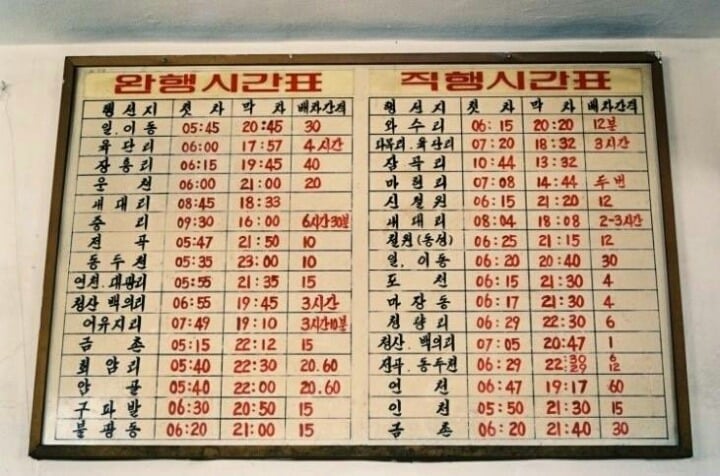 완행시간표
행선지 첫차 막차 배차간격
일.이동 05:45 20:45 30
육단리 06:00 17:57 4시간
장흥리 06:15 19:45 40
운천 06:00 21:00 20
새대리 08:45 18:33
중리 09:30 16:00 6시간30분
전곡 05:47 21:50 10
동두천 05:35 23:00 10
연천.대광리 05:55 21:35 15
청산 백의리 06:55 19:45 3시간
어유지리 07:49 19:10 3시간10분
금촌 05:15 22:12 15
최암리 05:40 22:30 20.60
안골 05:40 22:00 20.60
구파발 06:30 20:50 15
불광동 06:20 21:00 15
직행시간표
행선지 첫차 막차 배차간격
와수리 06:15 20:20 12분
다목리.육단리 07:20 18:32 3시간
잠곡리 10:44 13:32
마현리 07:08 14:44 두번
신철원 06:15 21:20 12
새대리 08:04 18:08 2-3시간
철원(동송) 06:25 21:15 12
일.이동 06:20 20:40 30
포천 06:15 21:30 4
마장동 06:17 21:30 4
청량리 06:29 22:30 6
청산.백의리 07:05 20:47 1
전곡.동두천 06:29 22:30 22:29 6 12
연천 06:47 19:17 60
인천 05:50 21:30 15
금촌 06:20 21:40 30